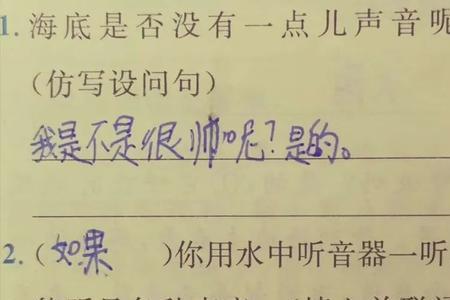 1.海底是否没有一点儿声音呢
(仿写设问句)
我是不是很帅呢?是的。
2.(如果 )你用水中听音器一听